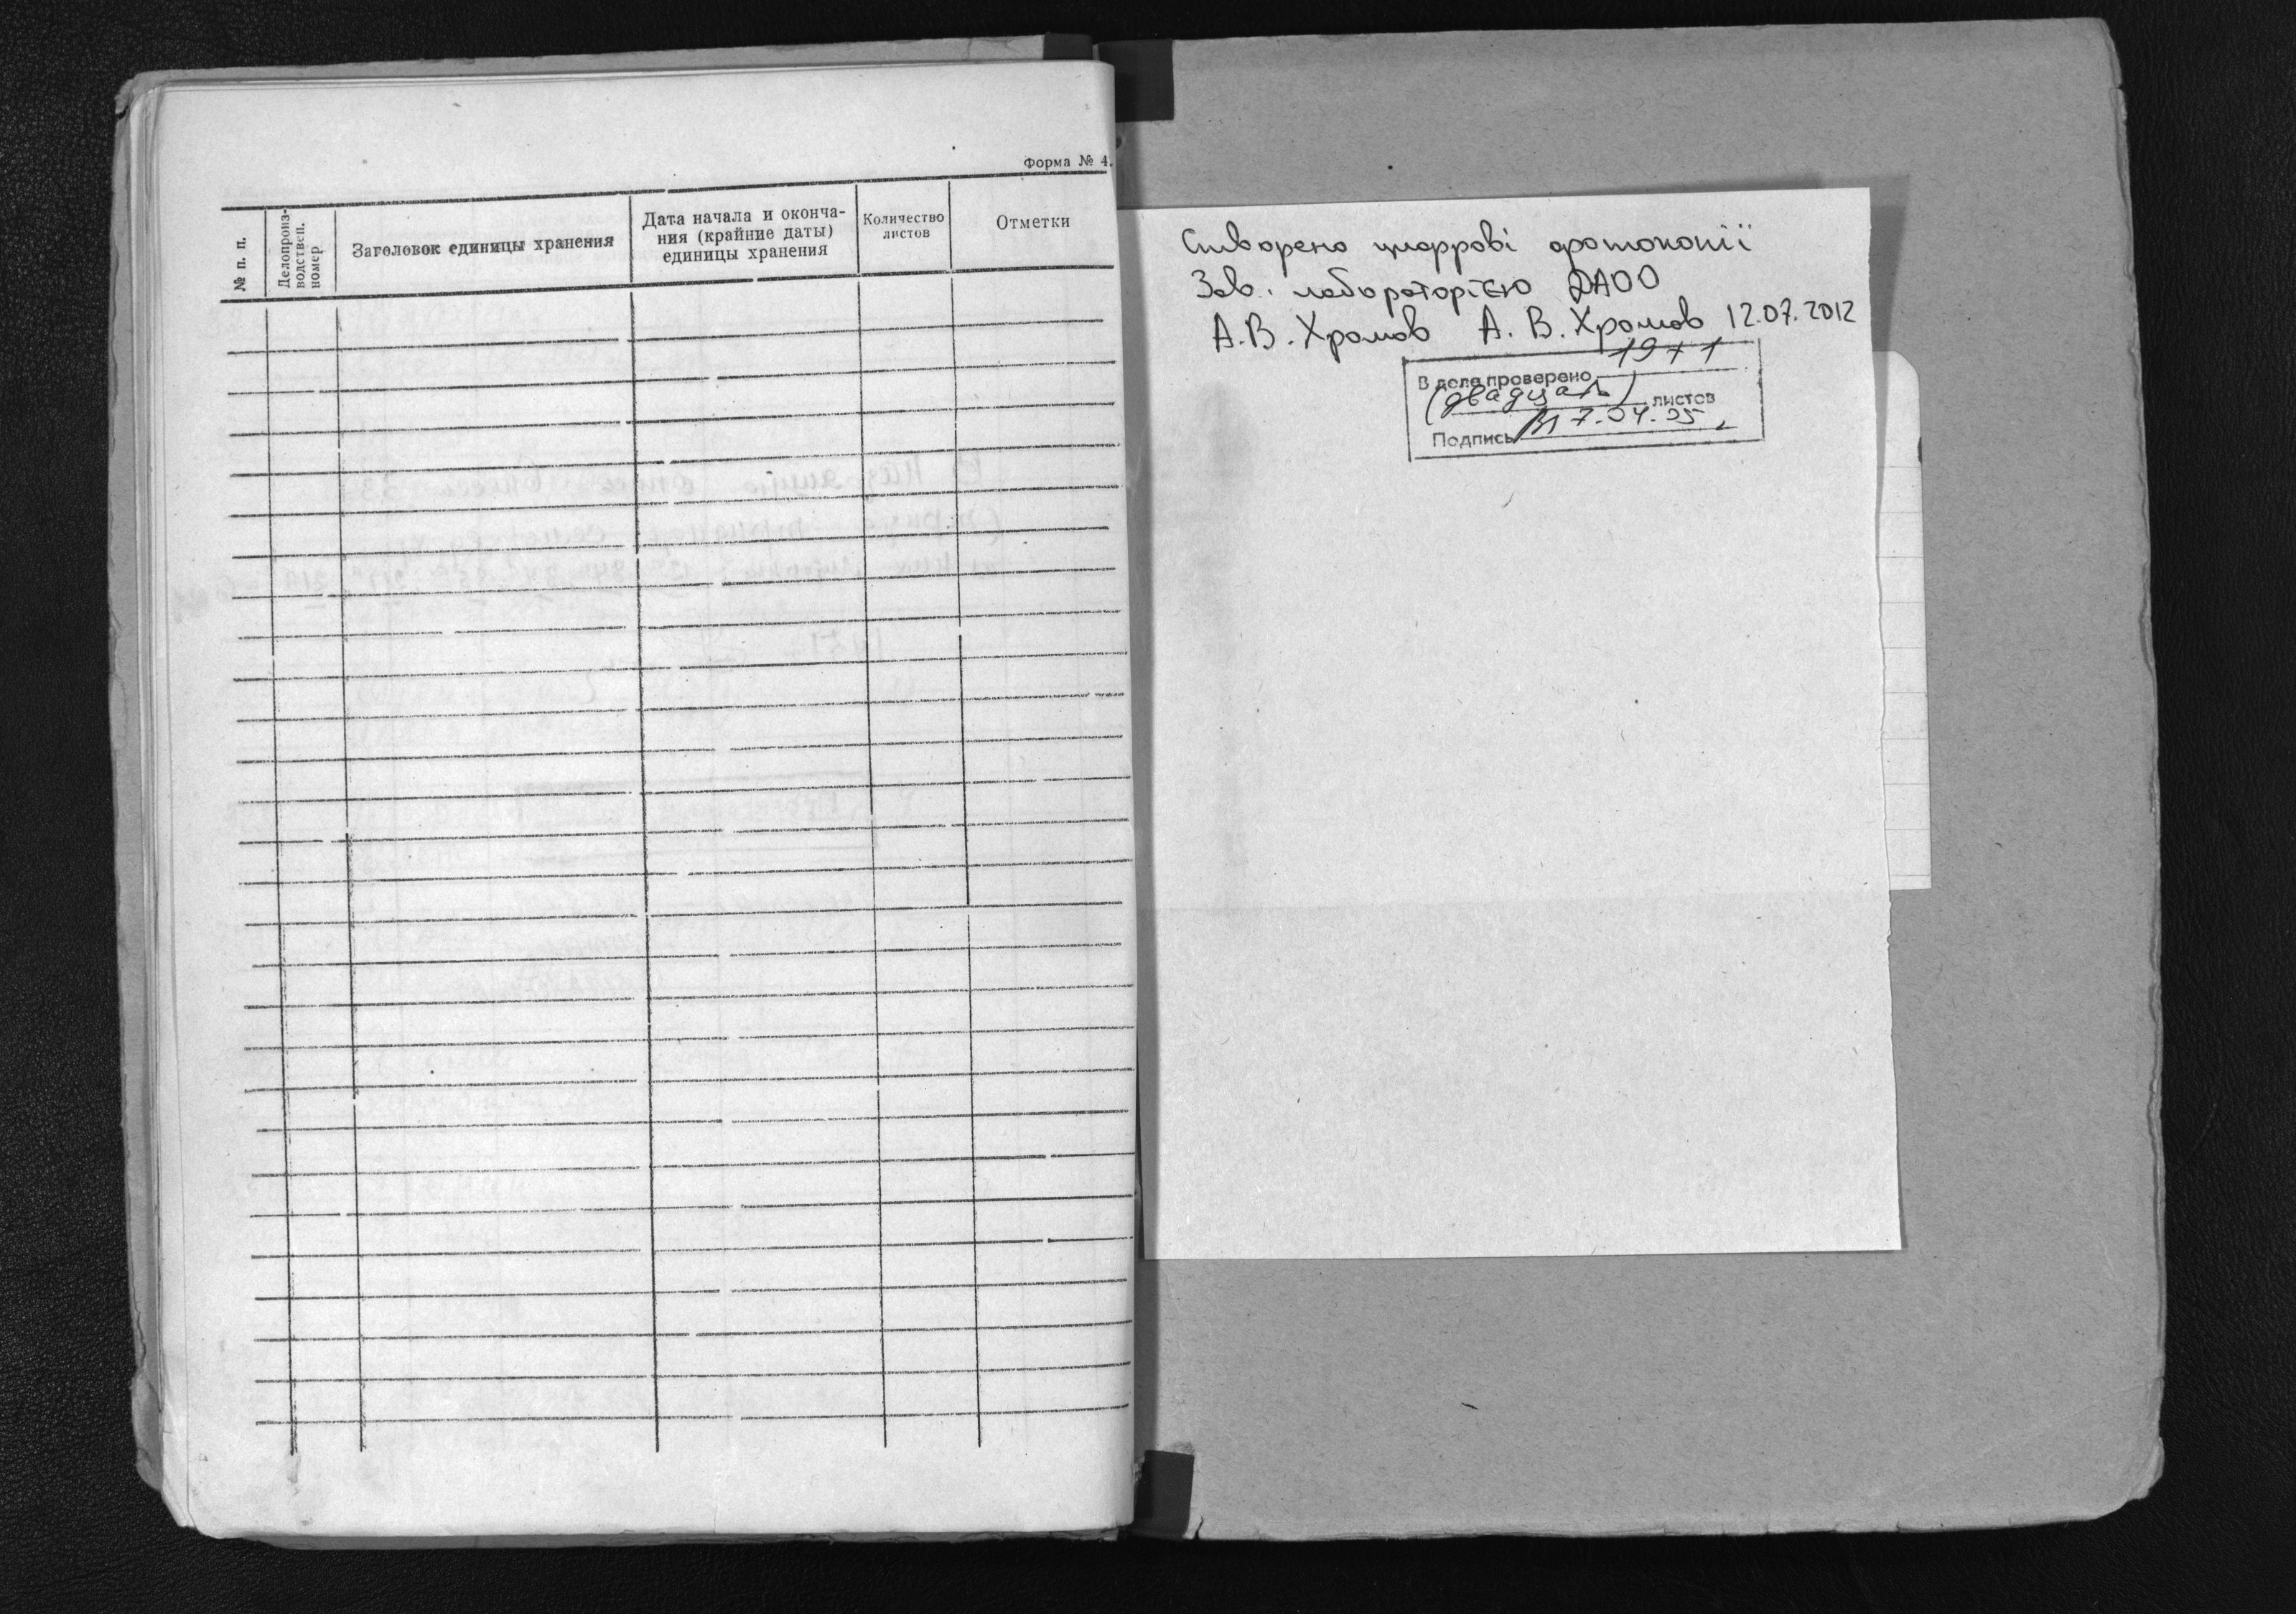 Форма № 4.
№ п. п.
Делопроиз-
водствен.
номер
Заголовок единицы хранения
Дата начала и оконча-
ния (крайние даты)
единицы хранения
Количество
листов
Отметки
Створено цифрові фотокопії
Зав. лабораторією ДАОО
А.В. Хромов А. В. Хромов 12.07.2012
В деле проверено 19+1
(двадцать) листов
Подпись 7.04.05